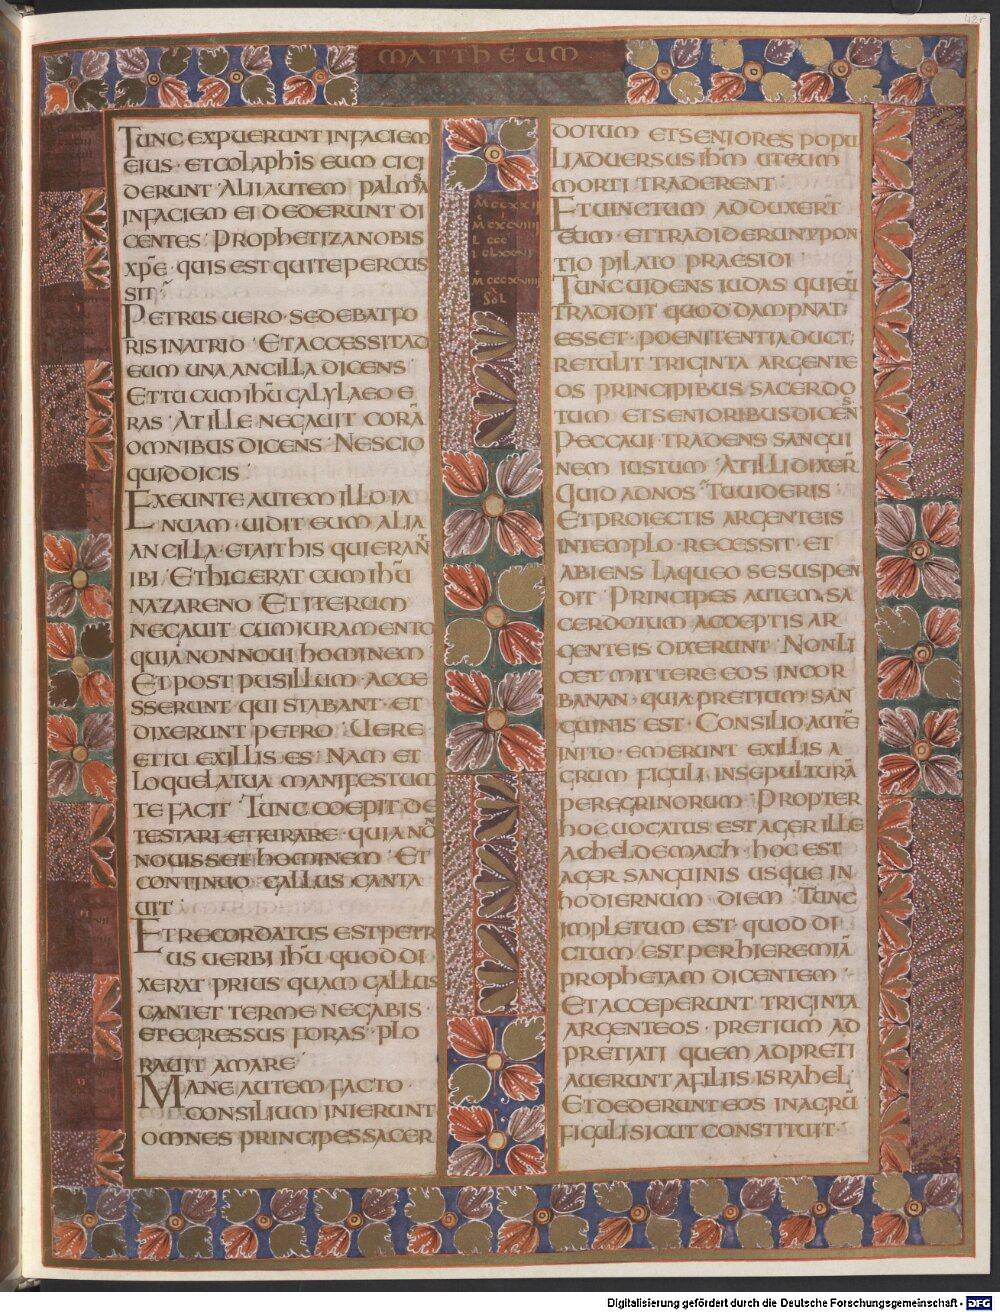 42r
MATTHEUM
TUNC EXPUERUNT IN FACIEM
EIUS · ET COLAPHIS EUM CICI
DERUNT · ALII AUTEM PALMAS
IN FACIEM EI DEDERUNT DI
CENTES · PROPHETIZA NOBIS
XPE · QUIS EST QUI TE PERCUS
SIT ·
PETRUS UERO · SEDEBAT FO
RIS IN ATRIO · ET ACCESSIT AD
EUM UNA ANCILLA DICENS ·
ET TU CUM IHU GALYLAEO E
RAS · AT ILLE NEGAUIT CORĀ
OMNIBUS DICENS · NESCIO
QUID DICIS ·
EXEUNTE AUTEM ILLO IA
NUAM · UIDIT EUM ALIA
ANCILLA · ET AIT HIS QUI ERANT
IBI · ET HIC ERAT CUM IHU
NAZARENO · ET ITERUM
NEGAUIT CUM IURAMENTO
QUIA NON NOUI HOMINEM
ET POST PUSILLUM · ACCE
SSERUNT · QUI STABANT · ET
DIXERUNT PETRO · UERE
ET TU EX ILLIS ES · NAM ET
LOQUELA TUA MANIFESTUM
TE FACIT · TUNC COEPIT DE
TESTARI ET IURARE · QUIA NŌ
NOUISSET HOMINEM · ET
CONTINUO · GALLUS CANTA
UIT ·
ET RECORDATUS EST PETR
US UERBI IHU QUOD DI
XERAT PRIUS QUAM GALLUS
CANTET TER ME NEGABIS ·
ET EGRESSUS FORAS · PLO
RAUIT AMARE ·
MANE AUTEM FACTO ·
CONSILIUM INIERUNT
OMNES PRINCIPES SACER
MCCXXII
L CCC
SOL
DOTUM ET SENIORES POPU
LI ADUERSUS IHM UT EUM
MORTI TRADERENT ·
ET UINCTUM ADDUXERT
EUM · ET TRADIDERUNT PON
TIO PILATO PRAESIDI ·
TUNC UIDENS IUDAS QUI EŪ
TRADIDIT QUOD DAMPNAT
ESSET · POENITENTIA DUCT;
RETULIT TRIGINTA ARGENTE
OS PRINCIPIBUS SACERDO
TUM ET SENIORIBUS DICENS
PECCAUI · TRADENS SANGUI
NEM IUSTUM · AT ILLI DIXERT
QUID AD NOS · TU UIDERIS ·
ET PROIECTIS ARGENTEIS
IN TEMPLO · RECESSIT · ET
ABIENS LAQUEO SE SUSPEN
DIT · PRINCIPES AUTEM SA
CERDOTUM ACCEPTIS AR
GENTEIS DIXERUNT · NON LI
CET MITTERE EOS IN COR
BANAN · QUIA PRETIUM SAN
GUINIS EST · CONSILIO AUTĒ
INITO · EMERUNT EX ILLIS A
GRUM FIGULI IN SEPULTURĀ
PEREGRINORUM · PROPTER
HOC UOCATUS EST AGER ILLE
ACHELDEMACH · HOC EST
AGER SANGUINIS USQUE IN
HODIERNUM DIEM · TUNC
IMPLETUM EST · QUOD DI
CTUM EST PER HIEREMIĀ
PROPHETAM DICENTEM ·
ET ACCEPERUNT TRIGINTA
ARGENTEOS · PRETIUM AD
PRETIATI QUEM ADPRETI
AUERUNT A FILIIS ISRAHEL ·
ET DEDERUNT EOS IN AGRŪ
FIGULI SICUT CONSTITUIT ·
Digitalisierung gefördert durch die Deutsche Forschungsgemeinschaft - DFG